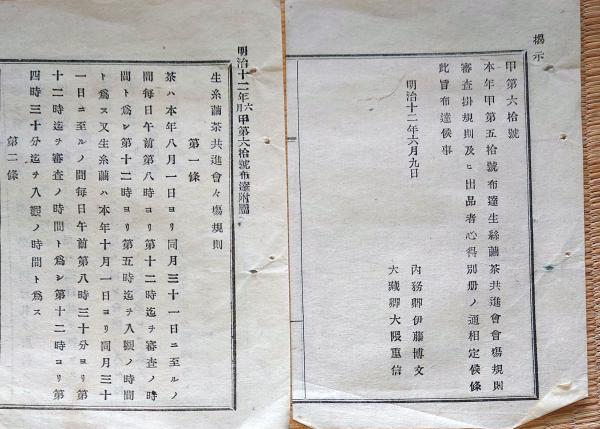 揭示
甲第六拾號
本年甲第五拾號布達生絲繭茶共進會會場規則
審査掛規則及ヒ出品者心得別册ノ通相定候條
此旨布達候事
明治十二年六月九日
內務卿伊藤博文
大藏卿大隈重信
明治十二年六月甲第六拾號布達附錄
生糸繭茶共進會々場規則
第一條
茶ハ本年八月一日ヨリ同月三十一日ニ至ルノ
間每日午前第八時ヨリ第十二時迄ヲ審査ノ時
間トシ第十二時ヨリ第五時迄ヲ入觀ノ時間
ト爲ス又生糸繭ハ本年十月一日ヨリ同月三十
一日ニ至ルノ間每日午前第八時三十分ヨリ第
十二時迄ヲ審査ノ時間ト爲シ第十二時ヨリ第
四時三十分迄ヲ入觀ノ時間ト爲ス
第二條